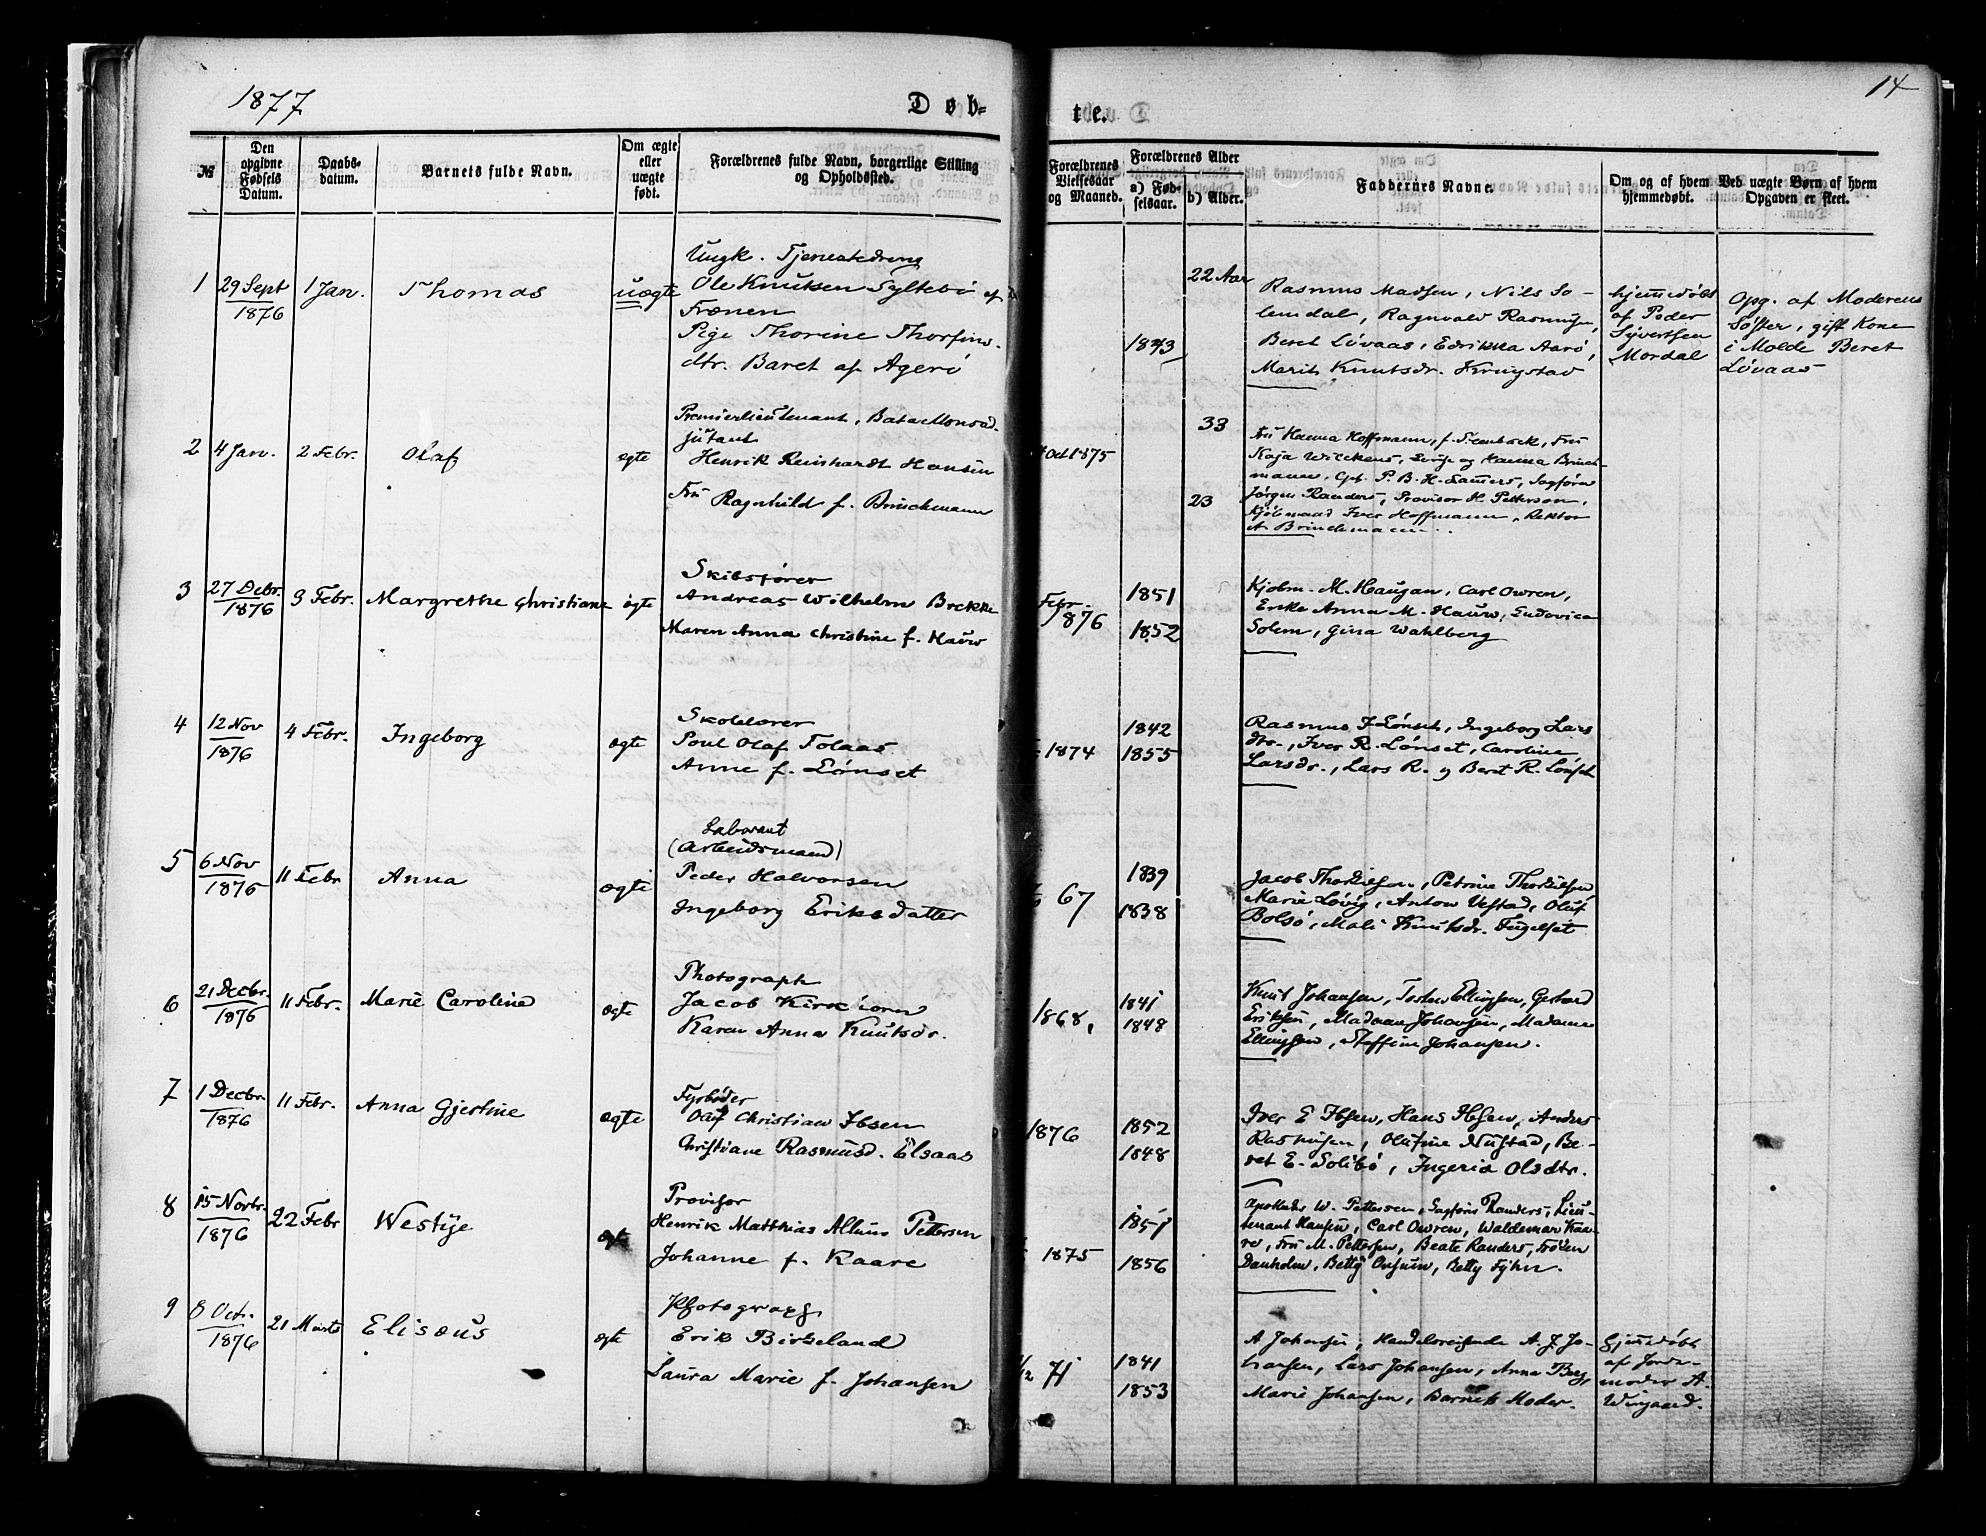 1877
Døb-
te.
14
№
Den opgivne Fødsels Datum.
Daabs-datum.
Barnets fulde Navn.
Om ægte eller uægte født.
Forældrenes fulde Navn, borgerlige Stilling og Opholdssted.
Forældrenes Vielsesaar og Maaned.
Forældrenes Alder
a) Fødselsaar.
b) Alder.
Faddernes Navne.
Om og af hvem hjemmedøbt.
Ved uægte Børn af hvem Opgaven er skeet.
1
29 Sept 1876
1 Jan.
Thomas
uægte
Ungk. Tjenestedreng
Ole Knutsen Syltebö af
Frænen
Pige Thorine Thorfins-
dtr. Baret af Agerö
22 Aar
1843
Rasmus Madsen, Nils So-
lemdal, Ragnvald Rasmusen,
Beret Lövaas, Edrikka Aarö,
Marit Knutsdr. Kringstad
hjemmedöbt
af Peder
Syvertsen
Mordal
Opg. af Moderens
Söster, gift Kone
i Molde Beret
Lövaas
2
4 Jan.
2 Febr.
Olaf
ægte
Premierlieutenant, Bataillonsad-
jutant
Henrik Reinhardt Hansen
Fru Ragnhild f. Brinchmann
Oct 1875
33
23
Fru Hanna Hoffmann, f. Stenbock, Fru
Kaja Wilckens, og Hanna Brinch-
mann, Cpt. P. B. H. Sagförer
Jörgen Randers, Provisor H. Pettersen,
Kjöbmand Iver Hoffmann, Rektor
A Brinchmann.
3
27 Debr. 1876
9 Febr.
Margrethe Christiane
ægte
Skibsförer
Andreas Wilhelm Brekke
Maren Anna Christine f. Hauw
Febr. 1876
1851
1852
Kjobm. M. Haugan, Carl Owren,
Enke Anna M. Hauw, Ludovica
Solem, Gina Wahlberg
4
12 Nov 1876
4 Febr.
Ingeborg
ægte
Skolelærer
Poul Olaf Tolaas
Anne f. Lönset
1874
1842
1855
Rasmus I Lönset, Ingeborg Lars
dtr., Iver R. Lönset, Caroline
Larsdr., Lars R. og Beret R. Lönset
5
6 Nov 1876
11 Febr
Anna
ægte
Laborant
(Arbeidsmand)
Peder Halvorsen
Ingeborg Eriksdatter
67
1839
1838
Jacob Thorkilsen, Petrine Thorkilsen
Marie Lovig, Anton Vestad, Oluf
Bolsö, Mali Knutsdr. Fugelset
6
21 Decbr. 1876
11 Febr.
Marie Caroline
ægte
Photograph
Jacob Kirkhorn
Karen Anna Knutsdr.
1868,
1841
1848
Knut Johansen, Torsten Ellingsen, Gerhard
Eriksen, Madam Johansen, Madame
Ellingsen, Steffine Johansen.
7
1 Decbr. 1876
11 Febr.
Anna Gjertine
ægte
Fyrböder
Olaf Christian Ibsen
Christiane Rasmusd. Elsaas
1876
1852
1848
Iver E Ibsen, Hans Ibsen, Anders
Rasmusen, Olufine Nustad, Be-
ret E. Solibö, Ingerid Olsdtr.
8
15 Novbr. 1876
22 Febr
Westye
ægte
Provisor
Henrik Matthias Pettersen
Johanne f. Kaare
1875
1851
1856
Apotheker W. Pettersen, Sagförer Randers, Lieu-
tenant Hansen, Carl Owren, Waldemar Kaa-
re, Fru M. Pettersen, Beate Randers, Fröken
Danholm, Betty Betty Fyhn.
9
8 Octr. 1876
21 Marts
Elisæus
ægte
Photograph
Erik Birkeland
Laura Marie f. Johansen
71
1841
1853
A Johansen, Handelsreisende A. J. Jo-
hansen, Lars Johansen, Anna Berg,
Marie Johansen, Barnets Moder.
Hjemmedöbt
af Jorde-
moder A.
Wingaard.